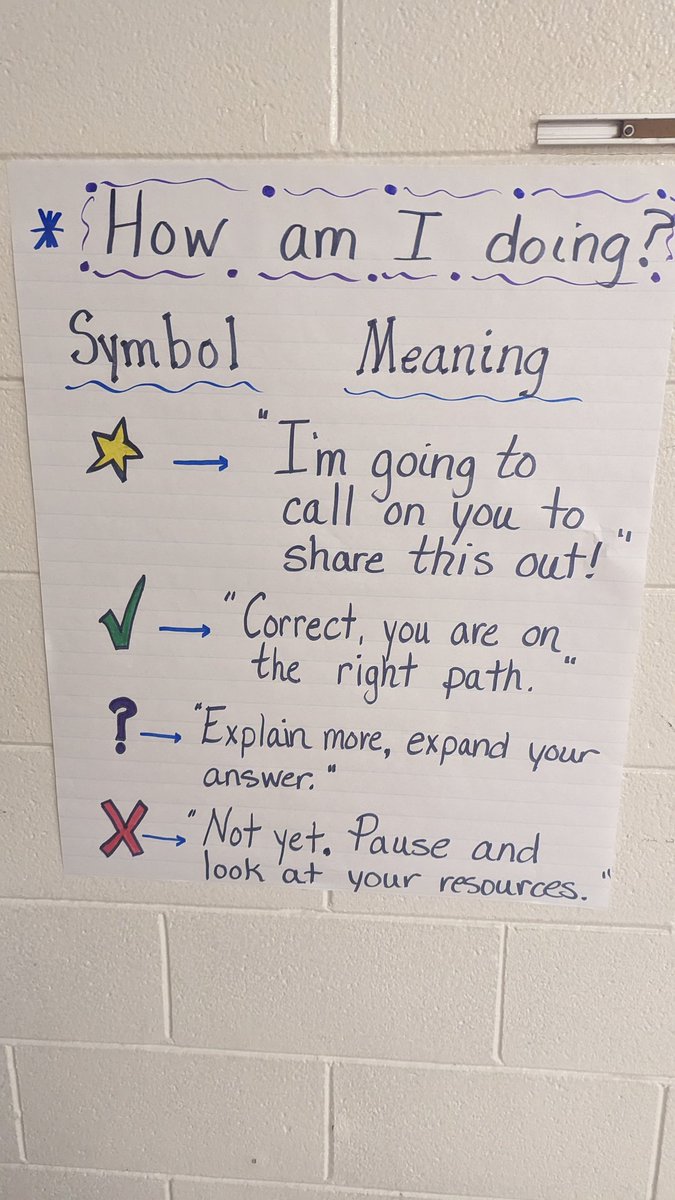 * How am I doing?
Symbol Meaning
→ "I'm going to
call on you to
share this out!"
✓ → "Correct, you are on
the right path."
? → "Explain more, expand your
answer."
X → "Not yet. Pause and
look at your resources."